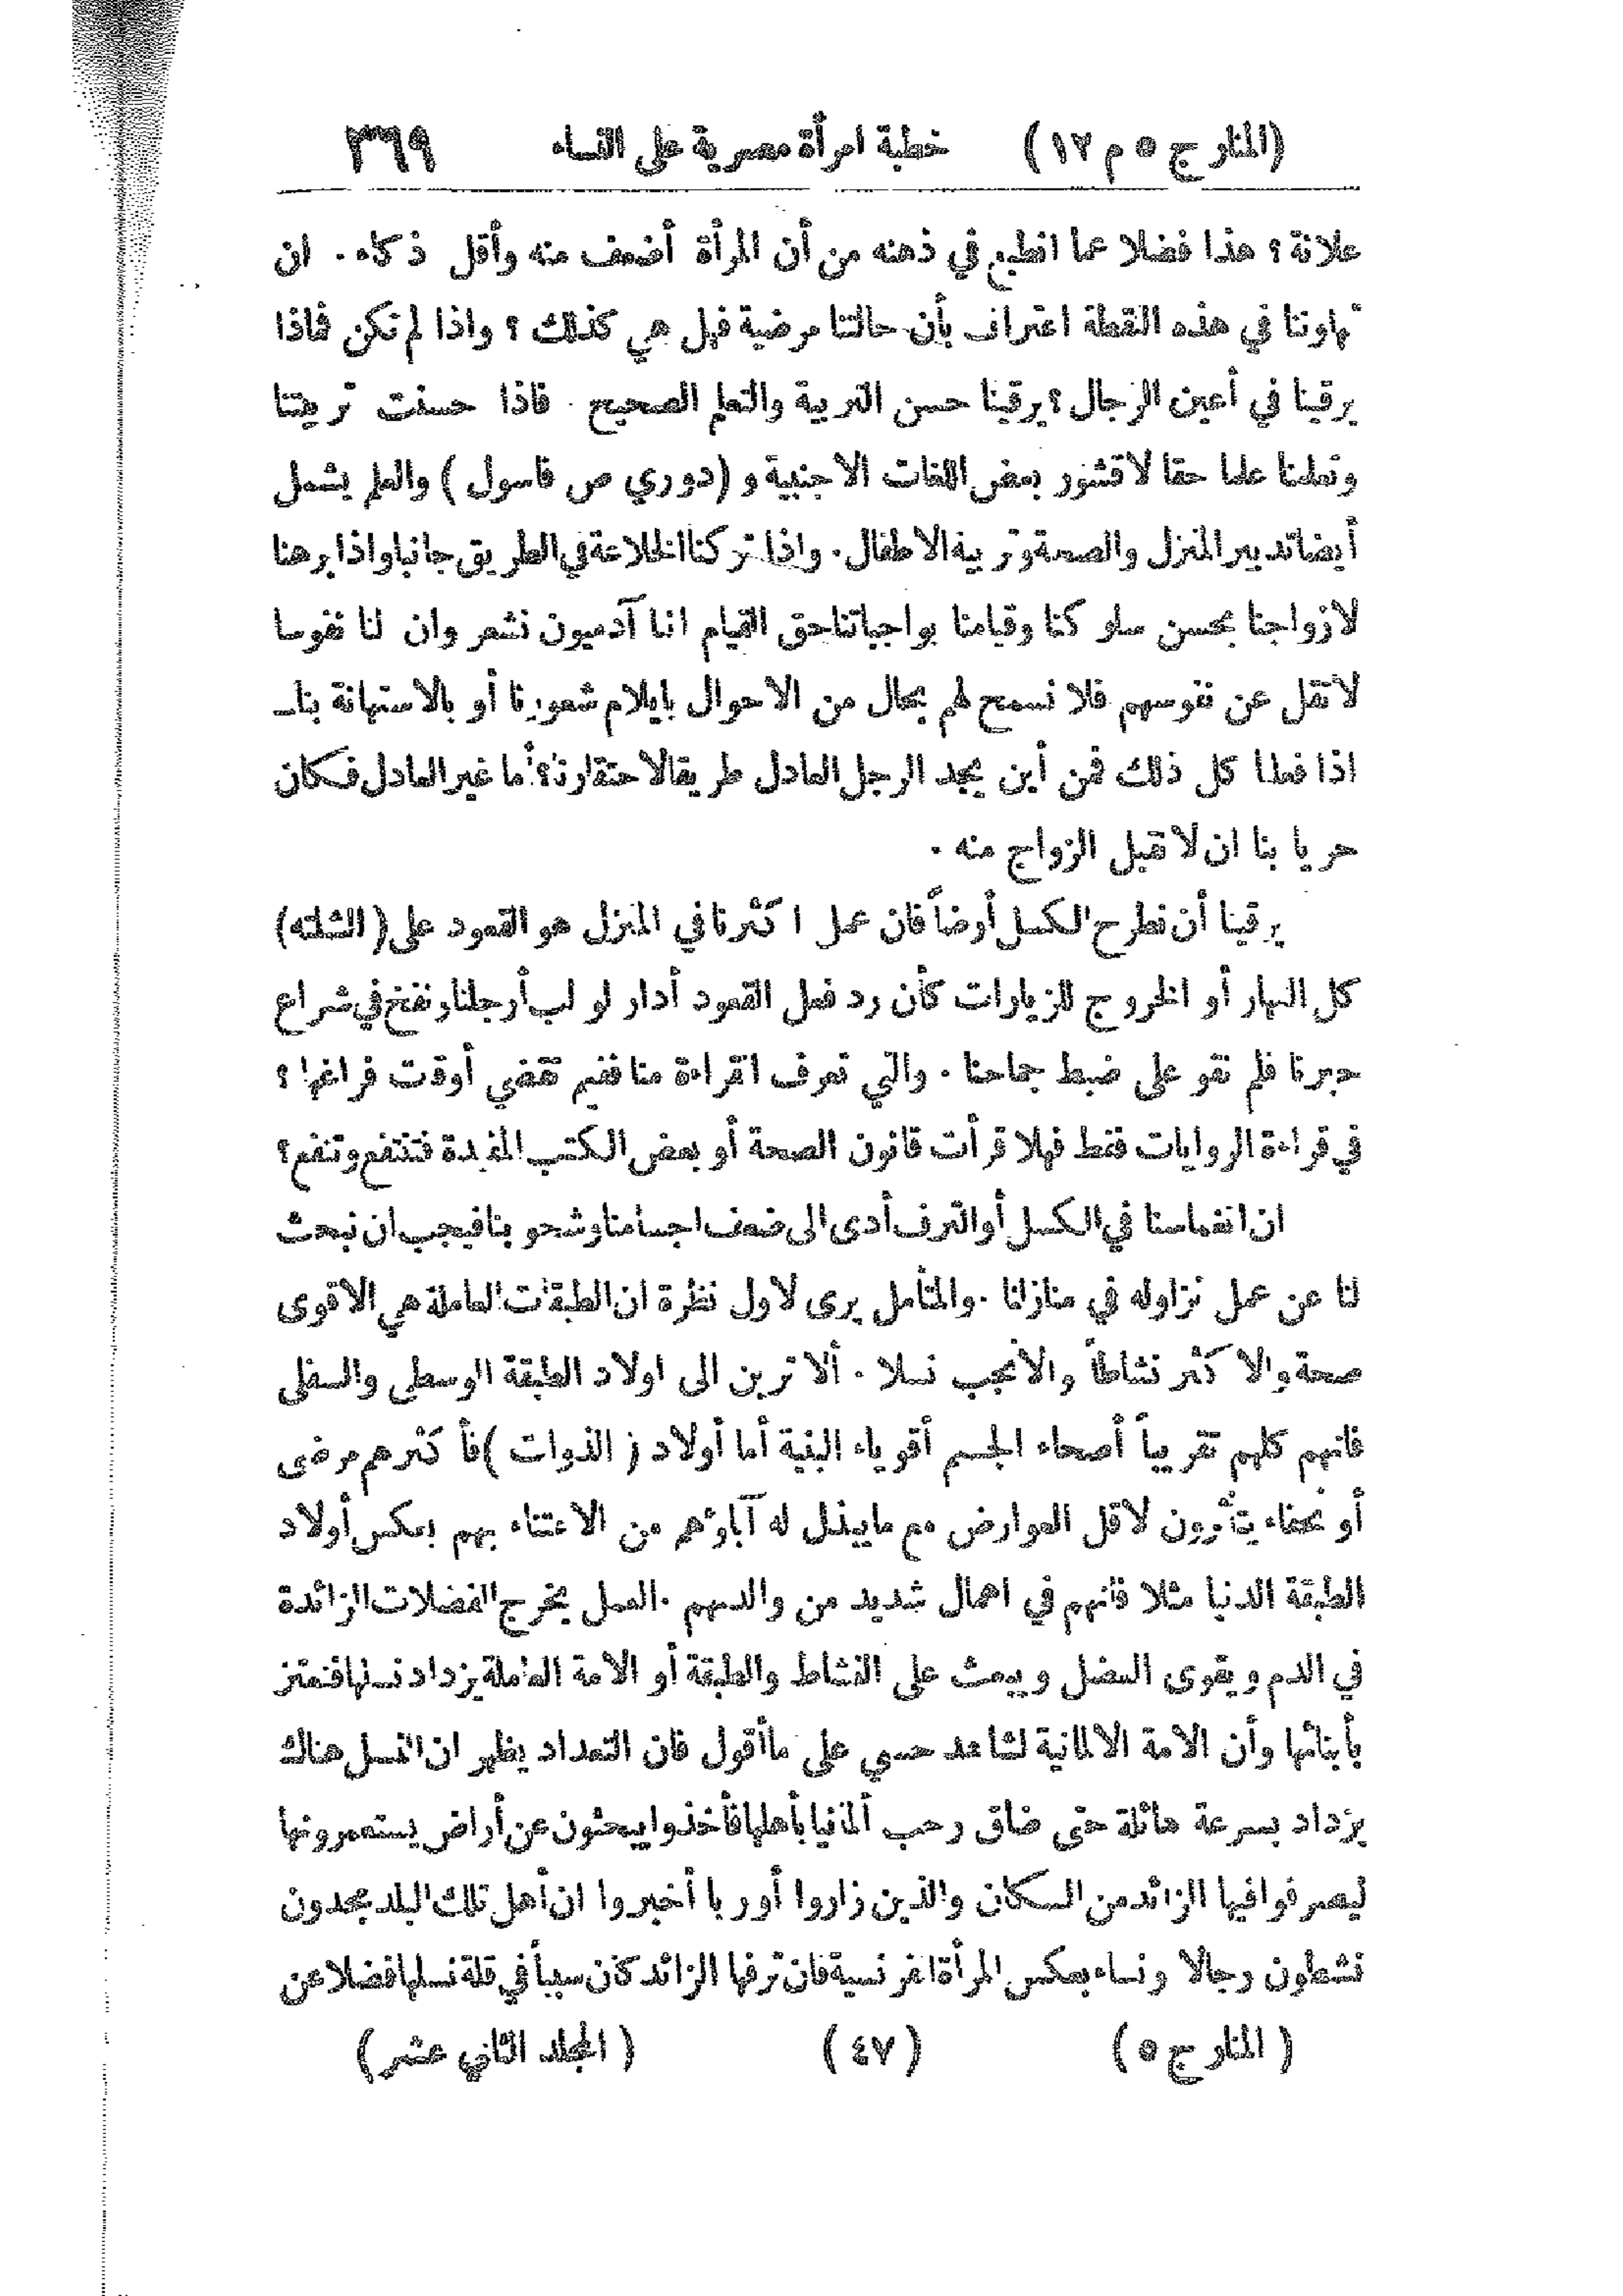 (المنار ج ٥ م ١٢) خطبة امرأة مصرية على النساء ٣٦٩
علانة ؟ هذا فضلا عما انطبع في ذهنه من أن المرأة أضعف منه وأقل ذكاء . ان
تهاوننا في هذه النقطة اعتراف بأن حالتنا مرضية فهل هي كذلك ؟ واذا لم تكن فماذا
يرقينا في أعين الرجال ؟ يرقينا حسن التربية والتعلم الصحيح . فاذا حسنت تربيتنا
وتعلمنا علما حقا لا قشور بعض اللغات الاجنبية و (دوري ص فاسول ) والعلم يشمل
أيضا تدبير المنزل والصحة وتربية الاطفال . واذا تركنا الخلاعة في الطريق جانبا واذا برهنا
لازواجنا بحسن سلوكنا وقيامنا بواجباتنا حق القيام اننا آدميون نشعر وان لنا نفوسا
لا تقل عن نفوسهم فلا نسمح لهم بحال من الاحوال بايلام شعورنا أو بالاستهانة بنا ـ
اذا فعلنا كل ذلك فمن أين يجد الرجل العادل طريقا لاحتقارنا؟ أما غير العادل فكان
حريا بنا ان لا نقبل الزواج منه .
يرقينا أن نطرح الكسل أرضاً فان عمل اكثرنا في المنزل هو القعود على ( الشلته)
كل النهار أو الخروج للزيارات كأن رد فعل القعود أدار لولب أرجلنا ونفخ في شراع
حبرنا فلم نقو على ضبط جماحنا . والتي تعرف القراءة منا ففيم تقضي أوقت فراغها ؟
في قراءة الروايات فقط فهلا قرأت قانون الصحة أو بعض الكتب المفيدة فتنتفع وتنفع؟
ان انغماسنا في الكسل أو الترف أدى الى ضعف اجسامنا وشحوبنا فيجب ان نبحث
لنا عن عمل نزاوله في منازلنا . والمتأمل يرى لاول نظرة ان الطبقات العاملة هي الاقوى
صحة والاكثر نشاطاً والأنجب نسلا . ألا ترين الى اولاد الطبقة الوسطى والسفلى
فانهم كلهم تقريباً أصحاء الجسم أقوياء البنية أما أولاد ( الذوات ) فأكثرهم مرضى
أو نحفاء يتأثرون لاقل العوارض مع ما يبذل له آباؤهم من الاعتناء بهم بعكس أولاد
الطبقة الدنيا مثلا فانهم في اهمال شديد من والديهم . العمل يخرج الفضلات الزائدة
في الدم ويقوى العضل ويبعث على النشاط والطبقة أو الامة العاملة يزداد نسلها فتعتز
بأبنائها وأن الامة الالمانية لشاهد حسي على ما أقول فان التعداد يظهر ان النسل هناك
يزداد بسرعة هائلة حتى ضاق رحب ألمانيا بأهلها فأخذوا يبحثون عن أراض يستعمرونها
ليصرفوا فيها الزائد من السكان والذين زاروا أوربا أخبروا ان أهل تلك البلد مجدون
نشطون رجالا ونساء بعكس المرأة الفرنسية فان ترفها الزائد كان سبباً في قلة نسلها فضلا عن
( المنار ج ٥ ) ( ٤٧ ) ( المجلد الثاني عشر )